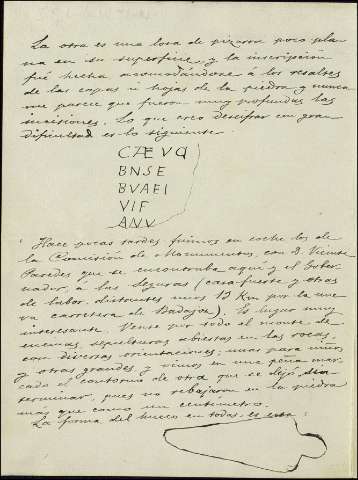 La otra es una losa de pizarra poco pla-
na en su superficie y la inscripción
fué hecha acomodándose á los resaltes
de las capas ú hojas de la piedra y nunca
me parece que fueron muy profundas las
incisiones. Lo que creo descifrar con gran
dificultad es lo siguiente
CÆVQ
BNSE
BVAEI
VIF
ANV
Hace pocas tardes fuimos en coche los de
la Comisión de Monumentos, con D. Vicente
Paredes que se encontraba aquí y el Gober-
nador, á las Seguras (casa fuerte y otras
de labor, distantes unos 13 Km por la nue
va carretera de Badajoz). Es lugar muy
interesante. Vense por todo el monte de
encinas, sepulturas abiertas en las rocas,
con diversas orientaciones; unas para niños
y otras grandes y vimos en una peña mar-
cado el contorno de otra que se dejó sin
terminar, pues no rebajaron en la piedra
más que como un centímetro.
La forma del hueco en todas es esta: